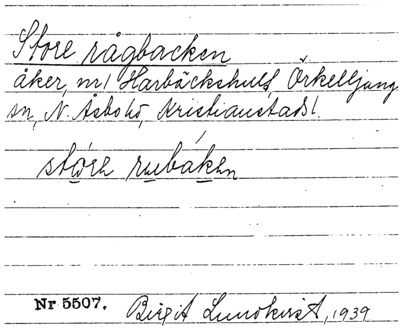 Store rågbacken
åker, nr 1 Harbäckshult, Örkelljunga
sn, N. Åsbo hd, Kristianstads l.
støre ruebáken
Nr 5507. Birgit Lundkvist, 1939